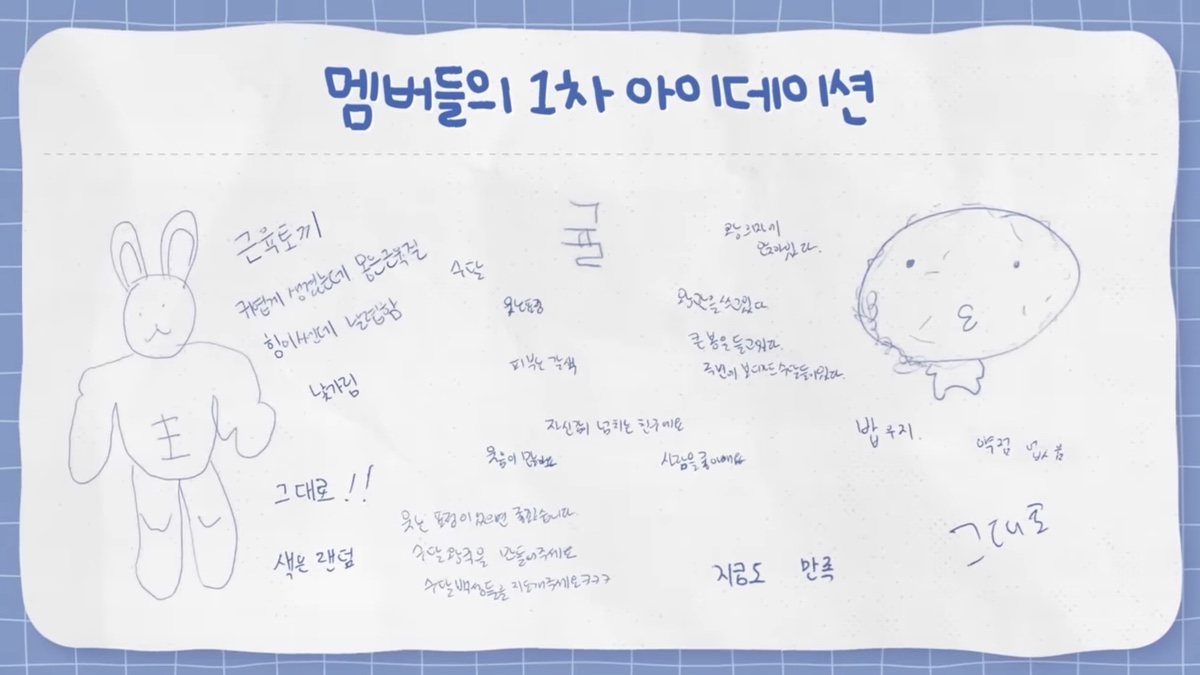 멤버들의 1차 아이데이션
근육토끼
귀엽게 생겼는데 몸은근육질
힘이쎈데 날렵함
낯가림
그대로!!
색은 랜덤
수달
귤
웃는표정
피부는 갈색
왕의자에
앉아있다.
왕관을쓰고있다
큰 봉을 들고있다.
주변에 보디가드수달들이있다.
자신감이 넘치는 친구에요
웃음이 많아요
사람을좋아해요
웃는 표정이 있으면 좋겠습니다
수달왕국을 만들어주세요
수달백성들을 지도해주세요ㅋㅋㅋ
밥우지.
약점 없슴
그대로
지금도 만족